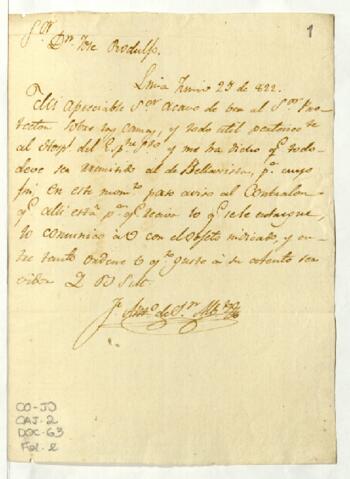 S.or
Dn. Jose Rodulfo.
1
Lima Junio 25 de 822.
Mi apreciable S.or Acavo de ver al S.or Pro-
tector sobre las camas, y todo util perteneciente
al Hosp.l del Esp.tu S.to y me ha dicho q.e todo
deve ser remitido al de Bellavista, p.a cuyo
fin en este mom.to paso aviso al Contralor
q.e alli está p.a q.e reciva lo q.e se le entregue,
lo comunico á V con el objeto indicado, y en-
tre tanto ordene lo q.e guste á su atento ser-
vidor Q B S M.
J.e Ant.o de
CO-JD
CAJ-2
DOC-63
Fol-2